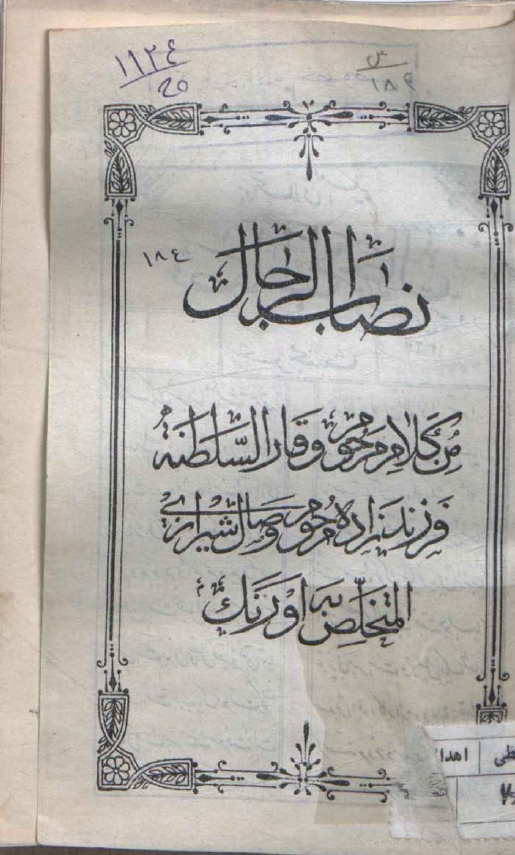 ١١٢٤
٢٥
س
١٨٩
١٨٤
نصاب الرجال
من كلام مرحوم وقار السَّلطنة
فرزند زاده مرحوم وصال شیرازی
المتخلّص به اورنگ
اهدا